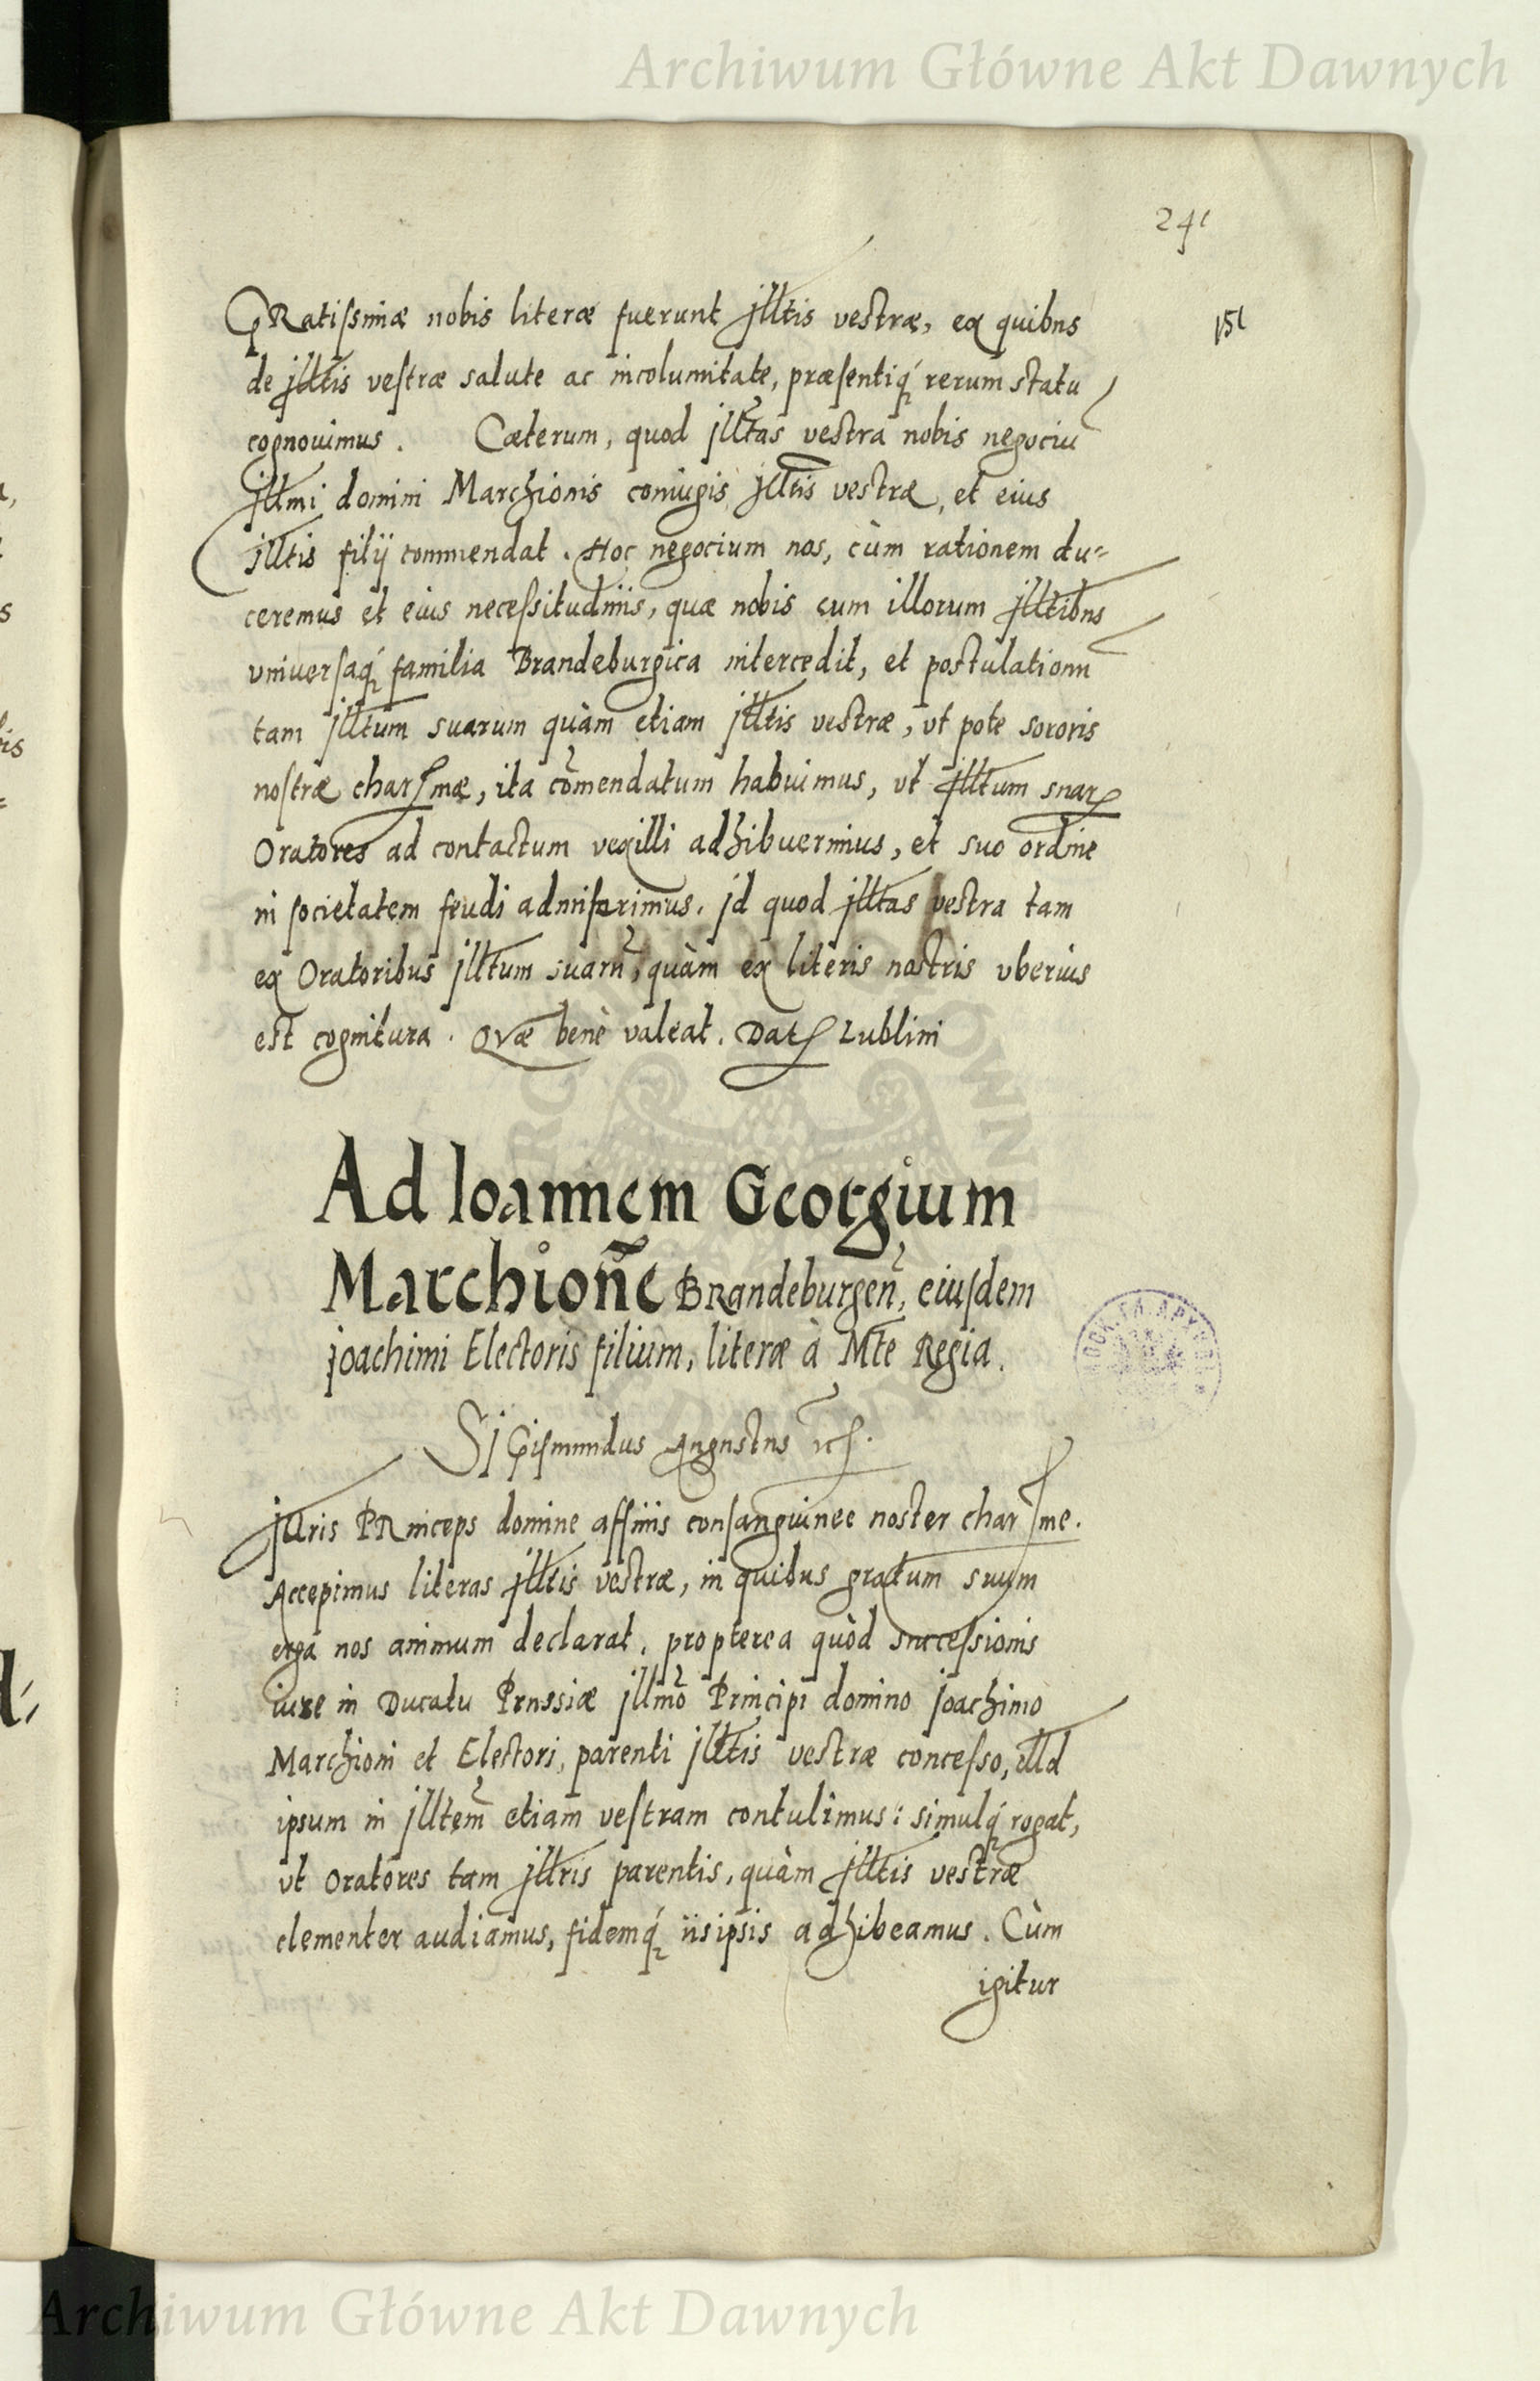 Archiwum Główne Akt Dawnych
241
151
GRatissimæ nobis literæ fuerunt Jlltis vestræ, ex quibus
de Jlltis vestræ salute ac incolumitate, præsentiq́ rerum statu
cognouimus. Cæterum, quod Jlltas vestra nobis negociũ
Jllmi domini Marchionis coniugis Jlltis vestræ, et eius
Jlltis filij commendat. Hoc negocium nos, cùm rationem du=
ceremus et eius necessitudinis, quæ nobis cum illorum Jlltibus
vniuersaq́ familia Brandeburgica intercedit, et postulationũ
tam Jlltum suarum quàm etiam Jlltis vestræ, vt pote sororis
nostræ charsmæ, ita cõmendatum habuimus, vt Jlltum suarꝝ
Oratores ad contactum vexilli adhibuerimus, et suo ordine
in societatem feudi admiserimus. Jd quod Jlltas vestra tam
ex Oratoribus Jlltum suarũ, quàm ex literis nostris vberius
est cognitura. Quæ benè valeat. Dat Lublini
Ad Ioannem Georgium
Marchionẽ BRandeburgeñ, eiusdem
Joachimi Electoris filium, literæ à Mte Regia.
SJGismundus Augustus etc.
Jllris PRinceps domine affinis consanguinee noster charsme.
Accepimus literas Jlltis vestræ, in quibus gratum suum
erga nos animum declarat, propterea quòd successionis
iure in Ducatu Prussiæ Jllmo Principi domino Joachimo
Marchioni et Electori, parenti Jlltis vestræ concesso, illd
ipsum in Jlltem etiam vestram contulimus: simulq́ rogat,
vt Oratores tam Jllris parentis, quàm Jlltis vestræ
clementer audiamus, fidemq́ iisipsis adhibeamus. Cùm
igitur
Archiwum Główne Akt Dawnych